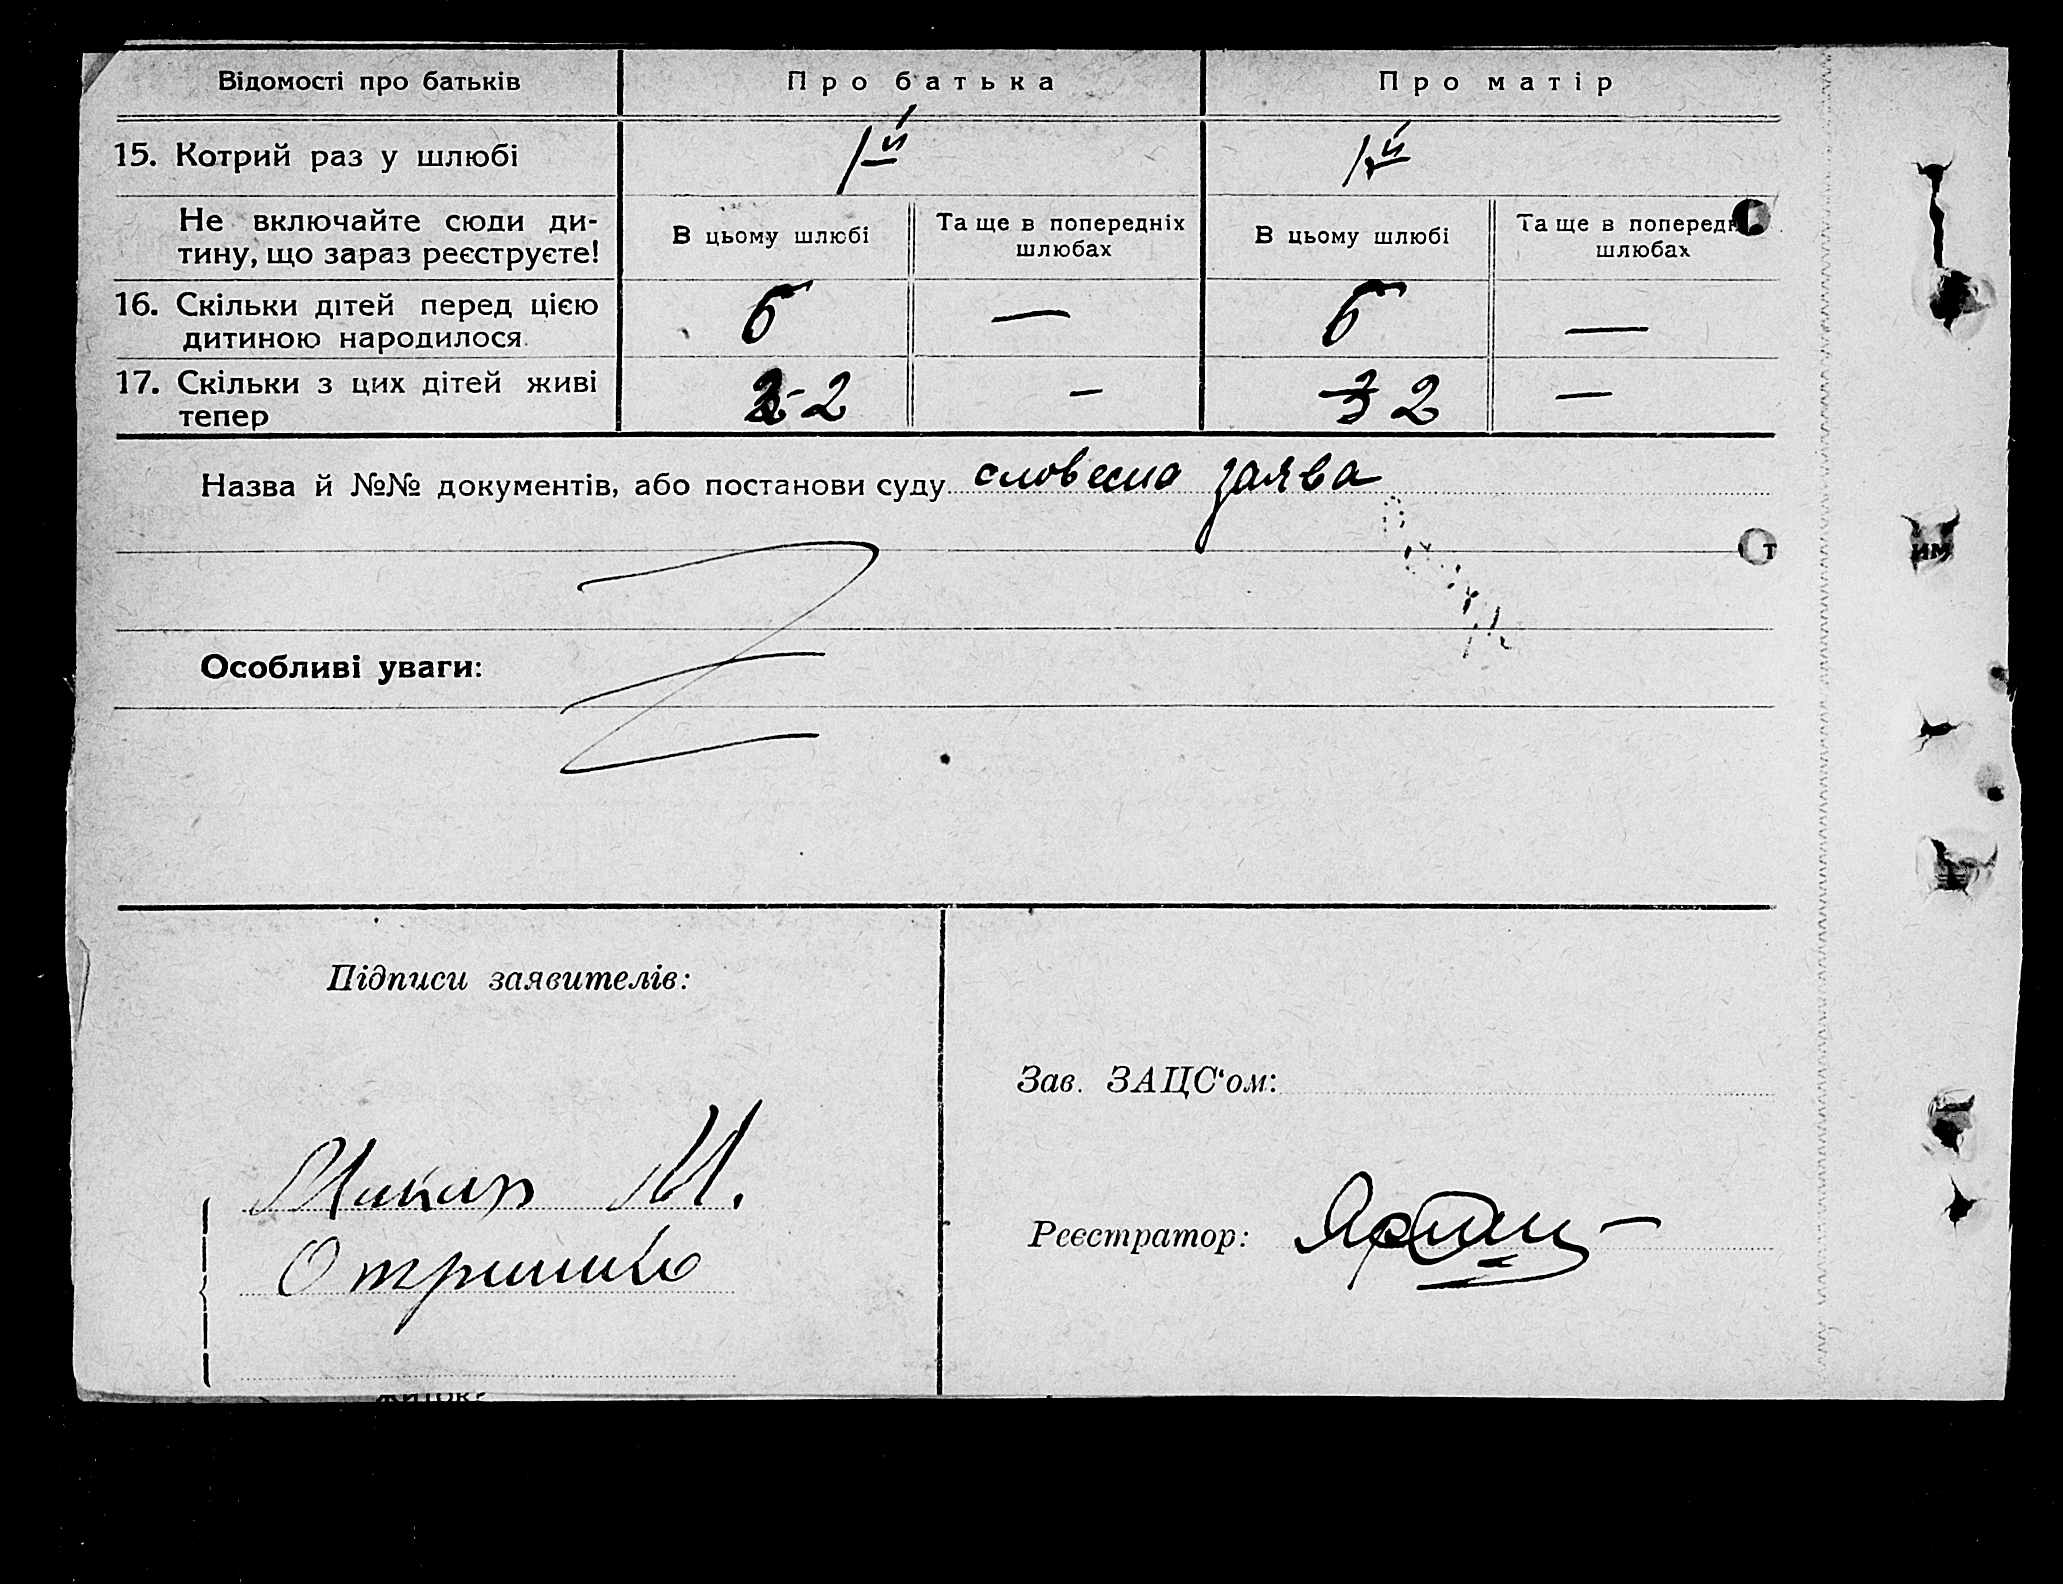 Відомості про батьків Про батька Про матір
15. Котрий раз у шлюбі 1й 1й
Не включайте сюди ди-
тину, що зараз реєструєте!
В цьому шлюбі Та ще в попередніх шлюбах В цьому шлюбі Та ще в попередн
шлюбах
16. Скільки дітей перед цією
дитиною народилося. 6 — 6 —
17. Скільки з цих дітей живі
тепер 2 — 3 2 —
Назва й №№ документів, або постанови суду словесна заява
Особливі уваги:
Підписи заявителів:
Зав. ЗАЦС'ом:
Макар М.
Реєстратор:
От им